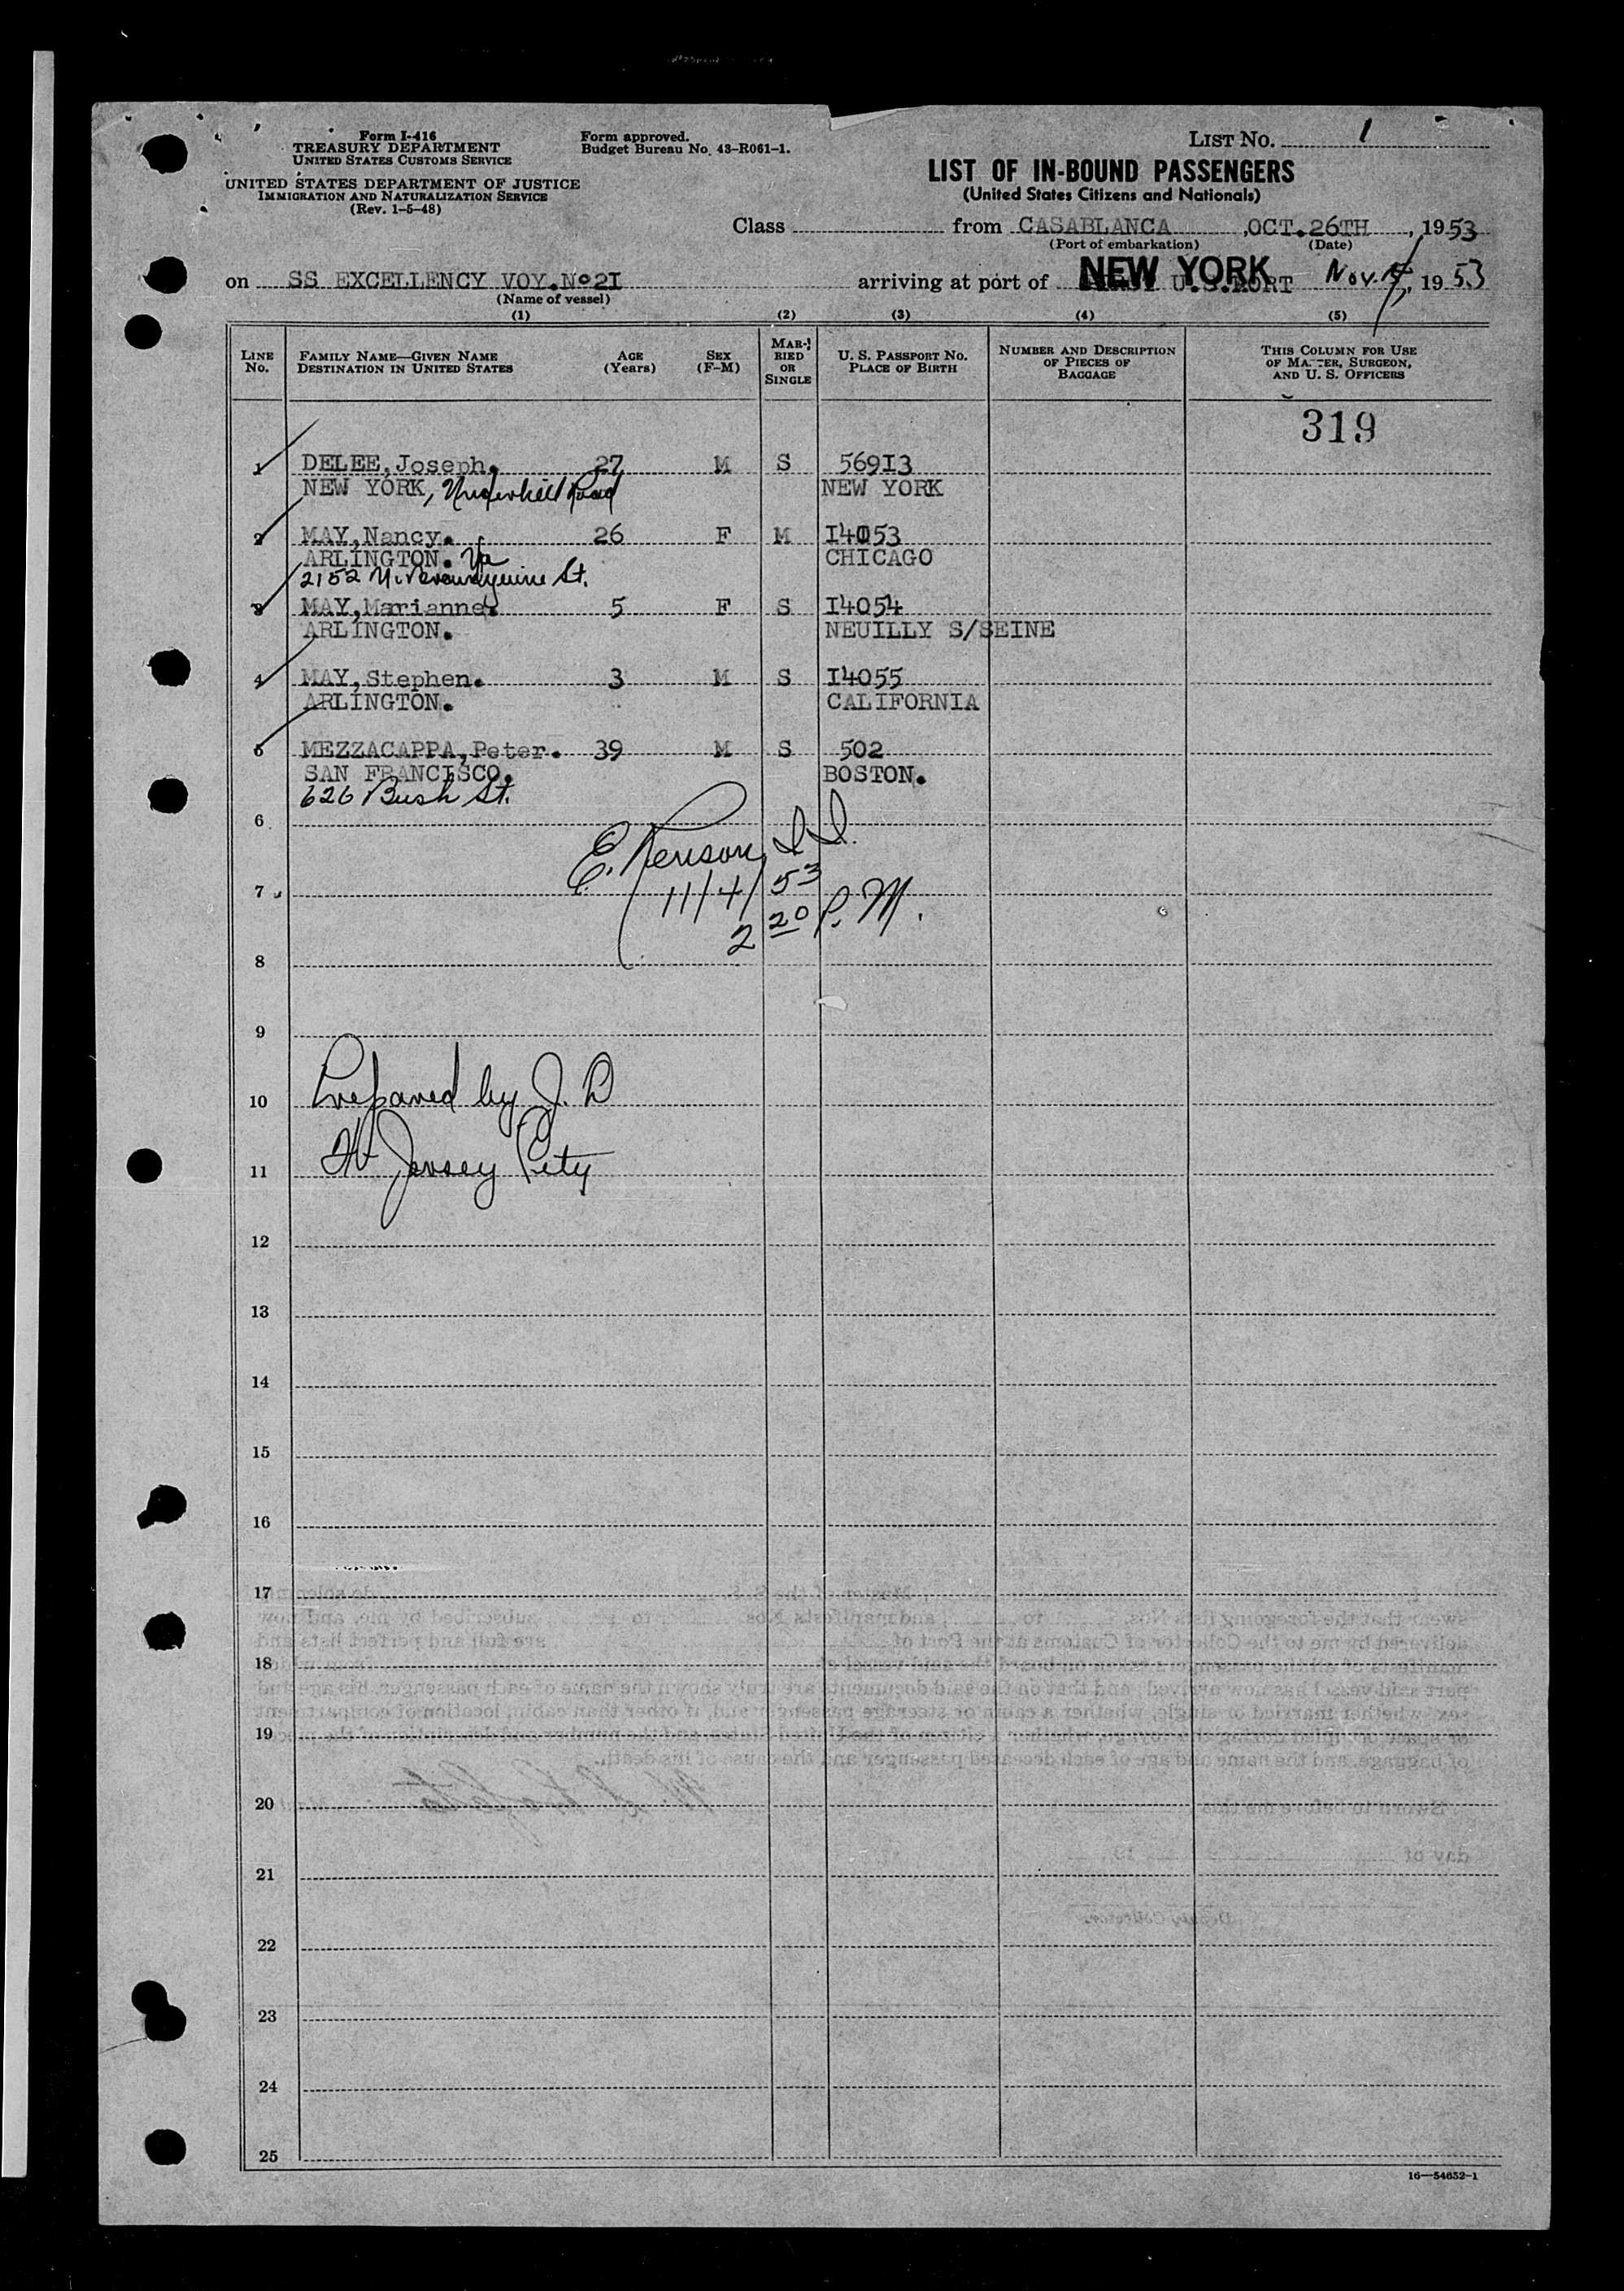 Form I-416
TREASURY DEPARTMENT
UNITED STATES CUSTOMS SERVICE
UNITED STATES DEPARTMENT OF JUSTICE
IMMIGRATION AND NATURALIZATION SERVICE
(Rev. 1-5-48)
Form approved.
Budget Bureau No. 43-R061-1.
LIST NO. 1
LIST OF IN-BOUND PASSENGERS
(United States Citizens and Nationals)
Class from CASABLANCA ,OCT.26TH , 1953
(Port of embarkation) (Date)
on SS EXCELLENCY VOY.No2I arriving at port of NEW YORK U.S.PORT Nov. , 1953
(Name of vessel)
(1) (2) (3) (4) (5)
LINE No. FAMILY NAME—GIVEN NAME DESTINATION IN UNITED STATES AGE (Years) SEX (F-M) MARRIED OR SINGLE U. S. PASSPORT NO. PLACE OF BIRTH NUMBER AND DESCRIPTION OF PIECES OF BAGGAGE THIS COLUMN FOR USE OF MASTER, SURGEON, AND U. S. OFFICERS
319
1 DELEE,Joseph. 27 M S 569I3
NEW YORK, Underhill Road NEW YORK
2 MAY,Nancy. 26 F M I4053
ARLINGTON. Va CHICAGO
2152 N. St.
3 MAY,Marianne. 5 F S I4054
ARLINGTON. NEUILLY S/SEINE
4 MAY,Stephen. 3 M S I4055
ARLINGTON. CALIFORNIA
5 MEZZACAPPA,Peter. 39 M S 502
SAN FRANCISCO. BOSTON.
626 Bush St.
6
E. Kenison, I.I.
7 11/4/53
2 20 P.M.
8
9
10 Prepared by J. D
11 At Jersey City
12
13
14
15
16
17
18
19
20
21
22
23
24
25
16—54652-1